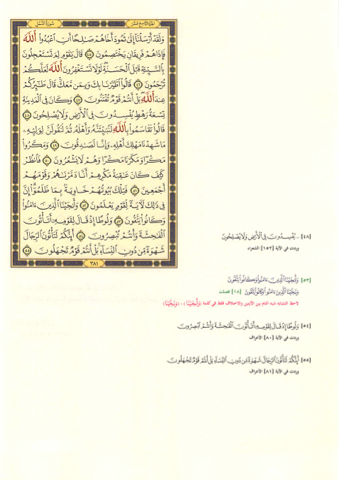 الجزء التاسع عشر
سورة النمل
وَلَقَدْ أَرْسَلْنَآ إِلَىٰ ثَمُودَ أَخَاهُمْ صَـٰلِحًا أَنِ ٱعْبُدُوا۟ ٱللَّهَ
فَإِذَا هُمْ فَرِيقَانِ يَخْتَصِمُونَ ٤٥ قَالَ يَـٰقَوْمِ لِمَ تَسْتَعْجِلُونَ
بِٱلسَّيِّئَةِ قَبْلَ ٱلْحَسَنَةِ لَوْلَا تَسْتَغْفِرُونَ ٱللَّهَ لَعَلَّكُمْ
تُرْحَمُونَ ٤٦ قَالُوا۟ ٱطَّيَّرْنَا بِكَ وَبِمَن مَّعَكَ قَالَ طَـٰٓئِرُكُمْ
عِندَ ٱللَّهِ بَلْ أَنتُمْ قَوْمٌ تُفْتَنُونَ ٤٧ وَكَانَ فِى ٱلْمَدِينَةِ
تِسْعَةُ رَهْطٍ يُفْسِدُونَ فِى ٱلْأَرْضِ وَلَا يُصْلِحُونَ ٤٨
قَالُوا۟ تَقَاسَمُوا۟ بِٱللَّهِ لَنُبَيِّتَنَّهُۥ وَأَهْلَهُۥ ثُمَّ لَنَقُولَنَّ لِوَلِيِّهِۦ
مَا شَهِدْنَا مَهْلِكَ أَهْلِهِۦ وَإِنَّا لَصَـٰدِقُونَ ٤٩ وَمَكَرُوا۟
مَكْرًا وَمَكَرْنَا مَكْرًا وَهُمْ لَا يَشْعُرُونَ ٥٠ فَٱنظُرْ
كَيْفَ كَانَ عَـٰقِبَةُ مَكْرِهِمْ أَنَّا دَمَّرْنَـٰهُمْ وَقَوْمَهُمْ
أَجْمَعِينَ ٥١ فَتِلْكَ بُيُوتُهُمْ خَاوِيَةًۢ بِمَا ظَلَمُوٓا۟ إِنَّ
فِى ذَٰلِكَ لَـَٔايَةً لِّقَوْمٍ يَعْلَمُونَ ٥٢ وَأَنجَيْنَا ٱلَّذِينَ ءَامَنُوا۟
وَكَانُوا۟ يَتَّقُونَ ٥٣ وَلُوطًا إِذْ قَالَ لِقَوْمِهِۦٓ أَتَأْتُونَ
ٱلْفَـٰحِشَةَ وَأَنتُمْ تُبْصِرُونَ ٥٤ أَئِنَّكُمْ لَتَأْتُونَ ٱلرِّجَالَ
شَهْوَةً مِّن دُونِ ٱلنِّسَآءِ بَلْ أَنتُمْ قَوْمٌ تَجْهَلُونَ ٥٥
٣٨١
[٤٨] .. يُفْسِدُونَ فِى ٱلْأَرْضِ وَلَا يُصْلِحُونَ
وردت في الآية [١٥٢] الشعراء
[٥٣] وَأَنجَيْنَا ٱلَّذِينَ ءَامَنُوا۟ وَكَانُوا۟ يَتَّقُونَ
وَنَجَّيْنَا ٱلَّذِينَ ءَامَنُوا۟ وَكَانُوا۟ يَتَّقُونَ [١٨] فصلت
لاحظ التشابه شبه التام بين الآيتين والاختلاف فقط في كلمة (وَأَنجَيْنَا) ، (وَنَجَّيْنَا)
[٥٤] وَلُوطًا إِذْ قَالَ لِقَوْمِهِۦٓ أَتَأْتُونَ ٱلْفَـٰحِشَةَ وَأَنتُمْ تُبْصِرُونَ
وردت في الآية [٨٠] الأعراف
[٥٥] أَئِنَّكُمْ لَتَأْتُونَ ٱلرِّجَالَ شَهْوَةً مِّن دُونِ ٱلنِّسَآءِ بَلْ أَنتُمْ قَوْمٌ تَجْهَلُونَ
وردت في الآية [٨١] الأعراف